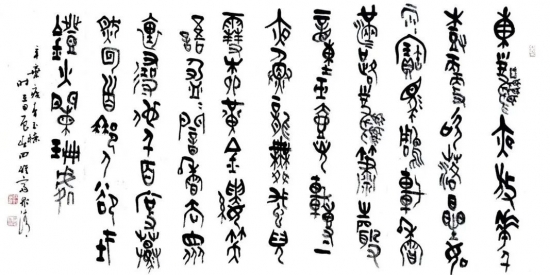 東風夜放花千
樹更吹落星如
雨寶馬雕車香
滿路鳳簫聲
動玉壺光轉一
夜魚龍舞蛾兒
雪柳黃金縷笑
語盈盈暗香去眾
裏尋他千百度驀
然回首那人卻在
燈火闌珊處
辛棄疾青玉案